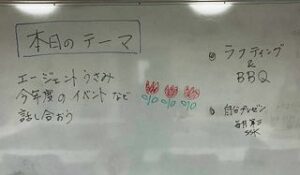 本日のテーマ
エージェントうさみ
今年度のイベントなど
話し合おう
ラフティング
&
BBQ